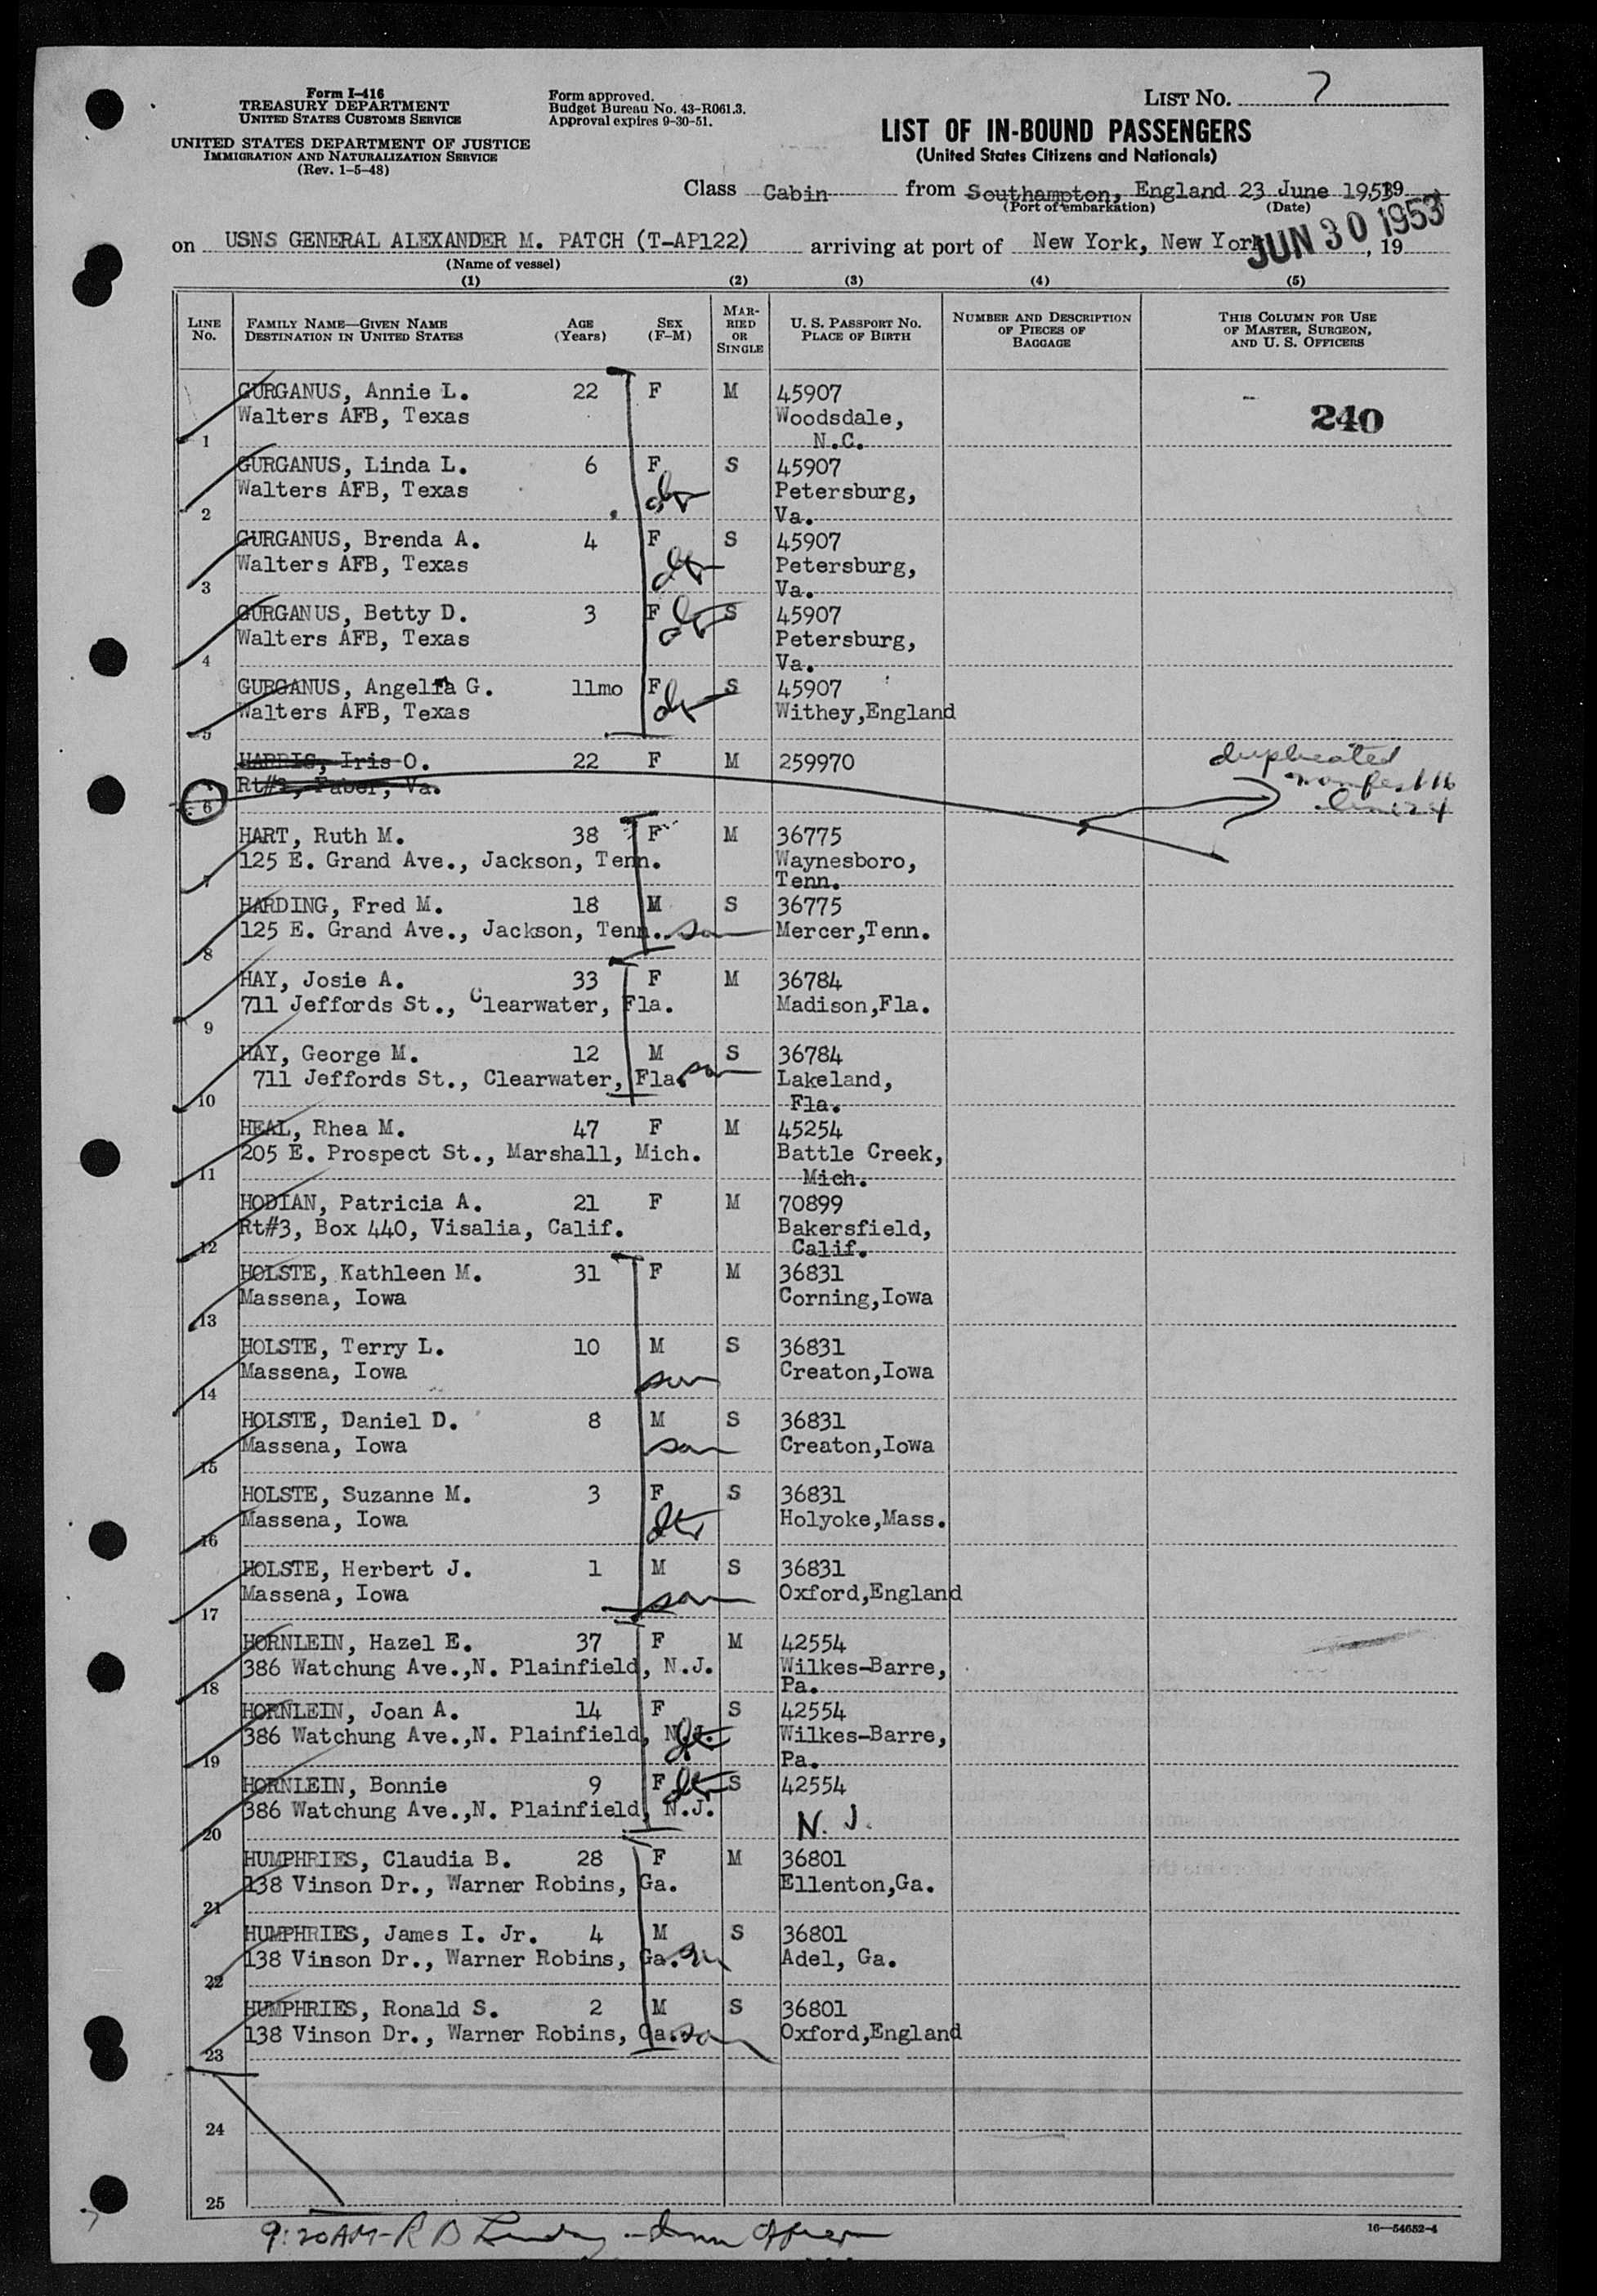 Form I-416
TREASURY DEPARTMENT
UNITED STATES CUSTOMS SERVICE
UNITED STATES DEPARTMENT OF JUSTICE
IMMIGRATION AND NATURALIZATION SERVICE
(Rev. 1-5-48)
Form approved.
Budget Bureau No. 43-R061.3.
Approval expires 9-30-51.
LIST NO. 7
LIST OF IN-BOUND PASSENGERS
(United States Citizens and Nationals)
Class Cabin from Southampton, England 23 June 1953, 19
(Port of embarkation) (Date)
on USNS GENERAL ALEXANDER M. PATCH (T-AP122) arriving at port of New York, New York JUN 30 1953, 19
(Name of vessel)
(1) (2) (3) (4) (5)
LINE NO. FAMILY NAME—GIVEN NAME DESTINATION IN UNITED STATES AGE (Years) SEX (F-M) MARRIED OR SINGLE U. S. PASSPORT NO. PLACE OF BIRTH NUMBER AND DESCRIPTION OF PIECES OF BAGGAGE THIS COLUMN FOR USE OF MASTER, SURGEON, AND U. S. OFFICERS
GURGANUS, Annie L. 22 F M 45907
Walters AFB, Texas Woodsdale, 240
1 N.C.
GURGANUS, Linda L. 6 F S 45907
Walters AFB, Texas Petersburg,
2 Va.
GURGANUS, Brenda A. 4 F S 45907
Walters AFB, Texas Petersburg,
3 Va.
GURGANUS, Betty D. 3 F S 45907
Walters AFB, Texas Petersburg,
4 Va.
GURGANUS, Angelia G. 11mo F S 45907
Walters AFB, Texas Withey,England
5
HARRIS, Iris O. 22 F M 259970 duplicated
Rt#1, Faber, Va. manifest 16
6 line 24
HART, Ruth M. 38 F M 36775
125 E. Grand Ave., Jackson, Tenn. Waynesboro,
7 Tenn.
HARDING, Fred M. 18 M S 36775
125 E. Grand Ave., Jackson, Tenn. son Mercer,Tenn.
8
HAY, Josie A. 33 F M 36784
711 Jeffords St., Clearwater, Fla. Madison,Fla.
9
HAY, George M. 12 M S 36784
711 Jeffords St., Clearwater, Fla. son Lakeland,
10 Fla.
HEAL, Rhea M. 47 F M 45254
205 E. Prospect St., Marshall, Mich. Battle Creek,
11 Mich.
HODIAN, Patricia A. 21 F M 70899
Rt#3, Box 440, Visalia, Calif. Bakersfield,
12 Calif.
HOLSTE, Kathleen M. 31 F M 36831
Massena, Iowa Corning,Iowa
13
HOLSTE, Terry L. 10 M S 36831
Massena, Iowa son Creaton,Iowa
14
HOLSTE, Daniel D. 8 M S 36831
Massena, Iowa son Creaton,Iowa
15
HOLSTE, Suzanne M. 3 F S 36831
Massena, Iowa dtr Holyoke,Mass.
16
HOLSTE, Herbert J. 1 M S 36831
Massena, Iowa son Oxford,England
17
HORNLEIN, Hazel E. 37 F M 42554
386 Watchung Ave.,N. Plainfield, N.J. Wilkes-Barre,
18 Pa.
HORNLEIN, Joan A. 14 F S 42554
386 Watchung Ave.,N. Plainfield, N.J. dtr Wilkes-Barre,
19 Pa.
HORNLEIN, Bonnie 9 F dtr S 42554
386 Watchung Ave.,N. Plainfield, N.J. N. J.
20
HUMPHRIES, Claudia B. 28 F M 36801
138 Vinson Dr., Warner Robins, Ga. Ellenton,Ga.
21
HUMPHRIES, James I. Jr. 4 M S 36801
138 Vinson Dr., Warner Robins, Ga. son Adel, Ga.
22
HUMPHRIES, Ronald S. 2 M S 36801
138 Vinson Dr., Warner Robins, Ga. son Oxford,England
23
24
25
9:20AM - R B
16—54652-4